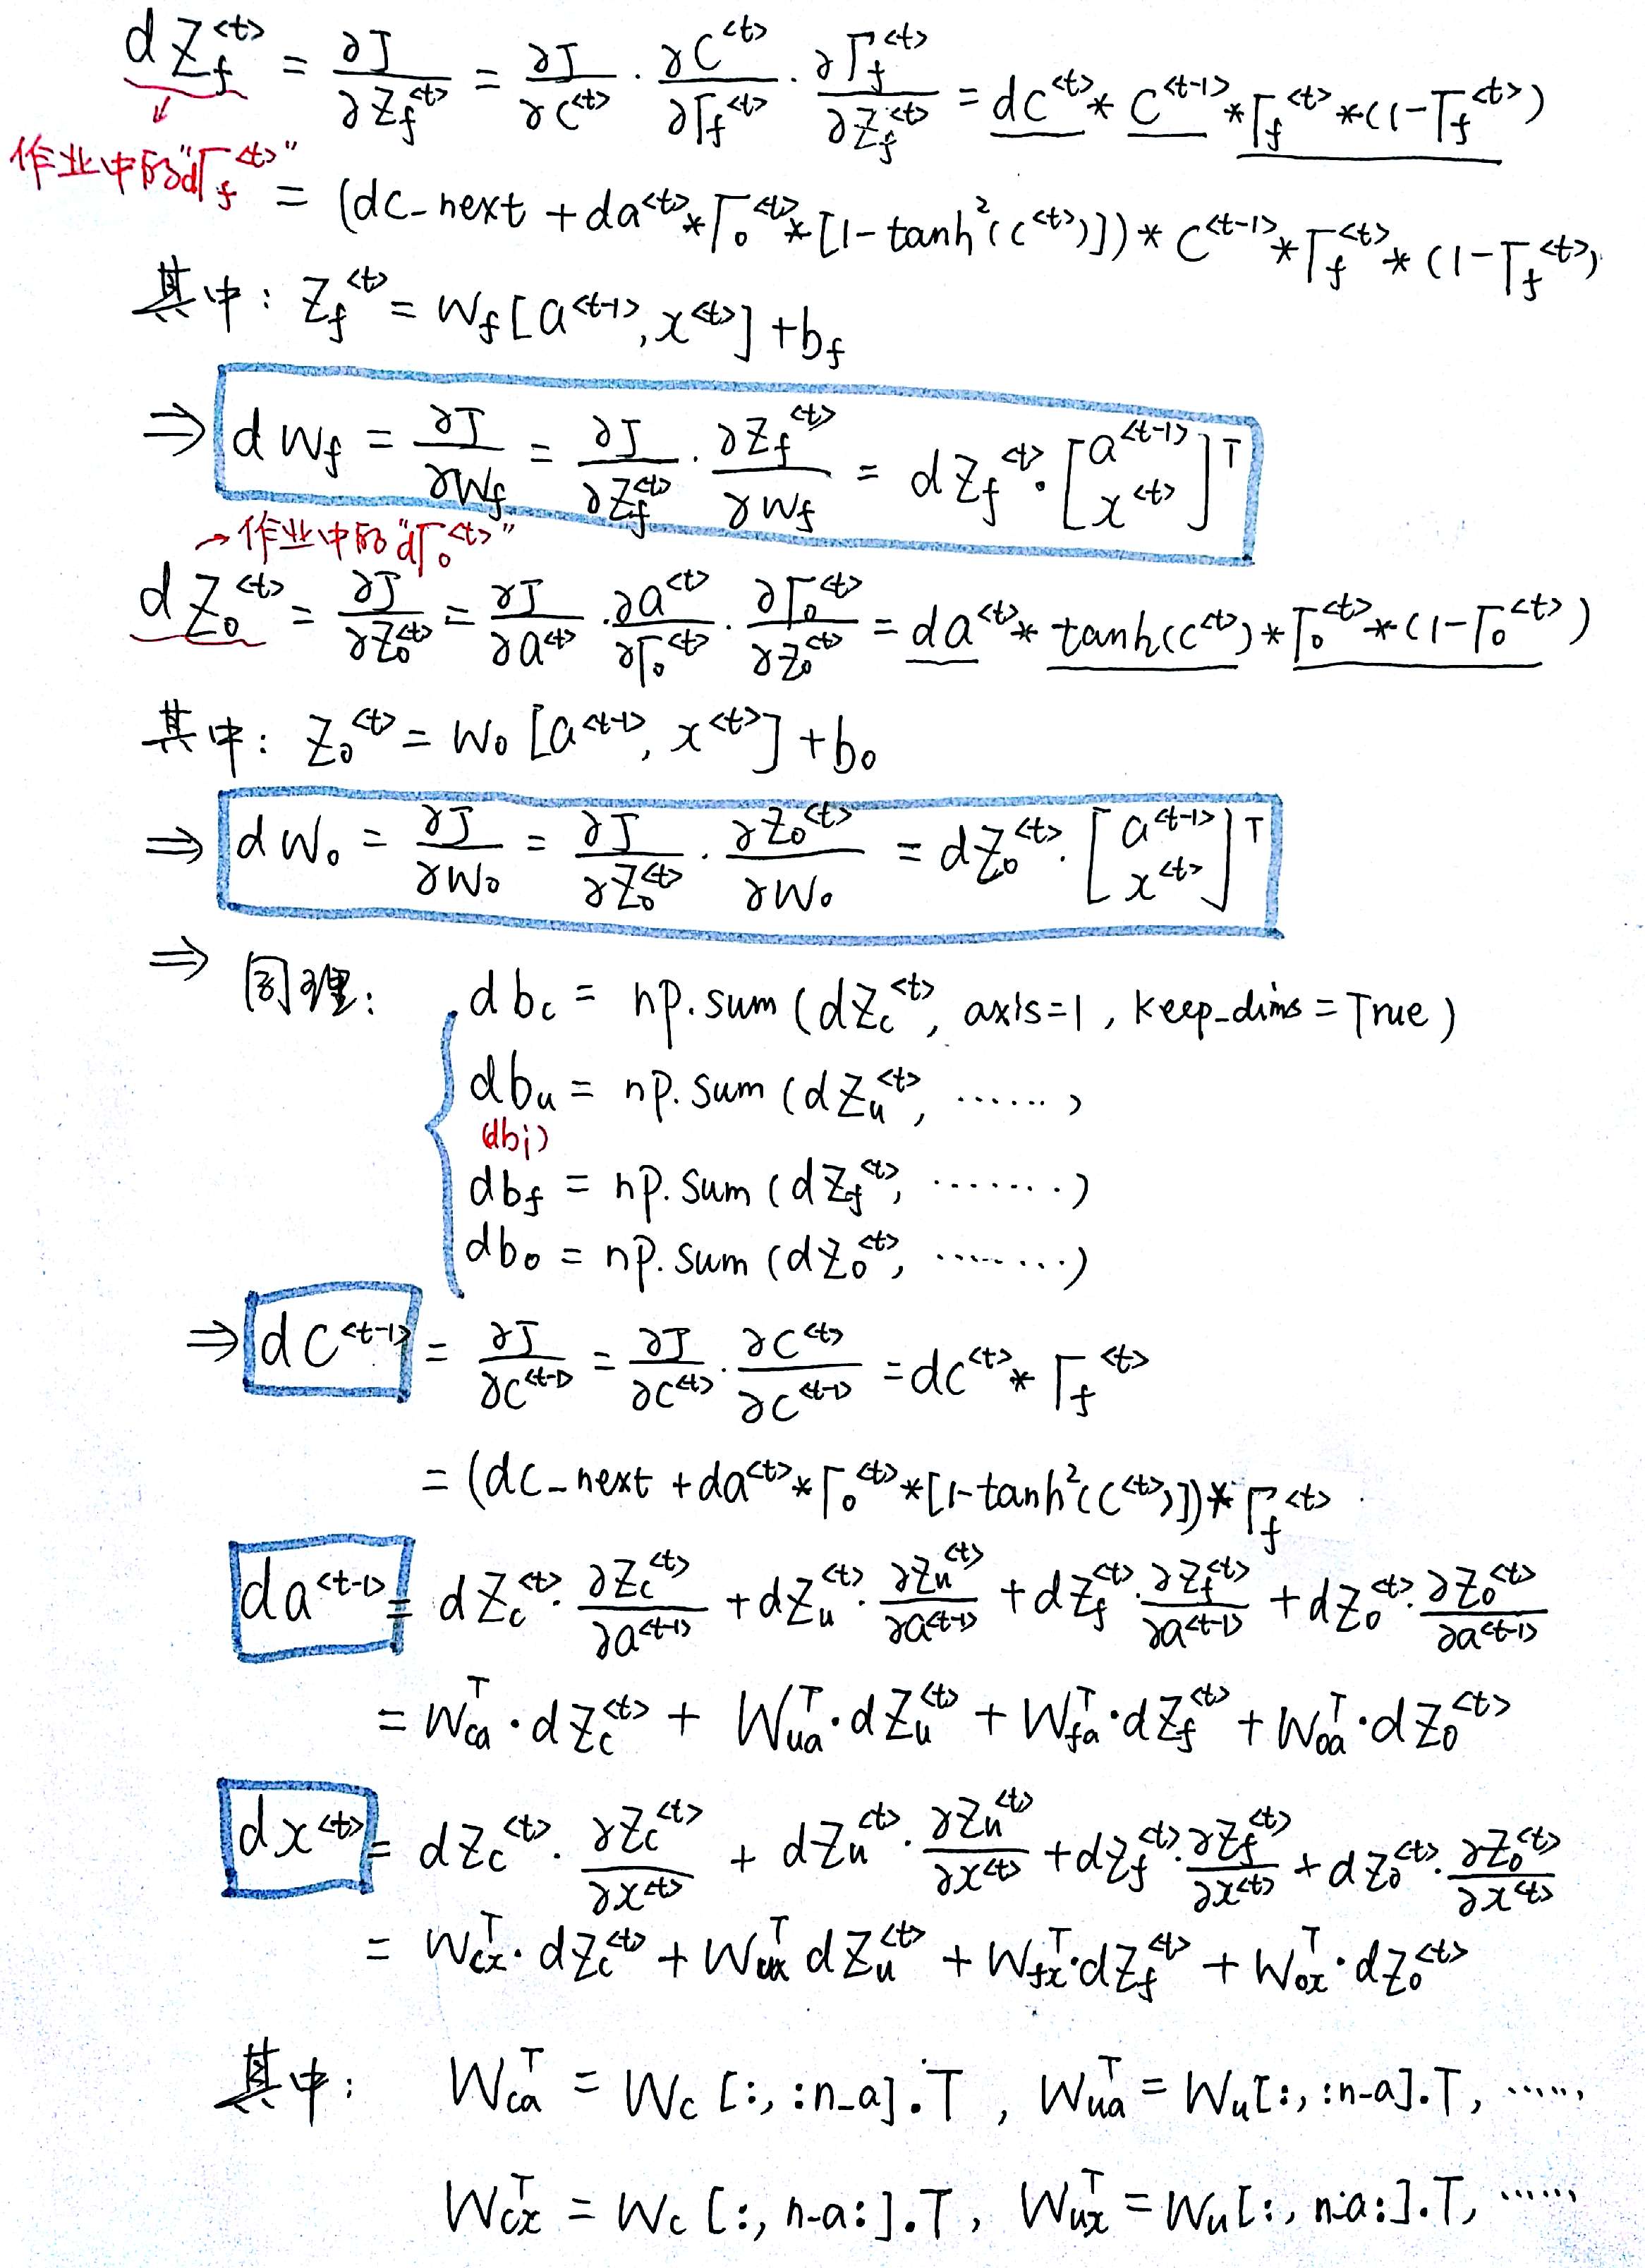 dZ_f^{<t>} = ∂J/∂Z_f^{<t>} = ∂J/∂C^{<t>} · ∂C^{<t>}/∂Γ_f^{<t>} · ∂Γ_f^{<t>}/∂Z_f^{<t>} = dC^{<t>} * C^{<t-1>} * Γ_f^{<t>} * (1-Γ_f^{<t>})
作业中的"dΓ_f^{<t>}"
= (dc_next + da^{<t>} * Γ_o^{<t>} * [1-tanh²(C^{<t>})]) * C^{<t-1>} * Γ_f^{<t>} * (1-Γ_f^{<t>})
其中: Z_f^{<t>} = W_f[a^{<t-1>}, x^{<t>}] + b_f
⇒ dW_f = ∂J/∂W_f = ∂J/∂Z_f^{<t>} · ∂Z_f^{<t>}/∂W_f = dZ_f^{<t>} · [a^{<t-1>} x^{<t>}]^T
→作业中的"dΓ_o^{<t>}"
dZ_o^{<t>} = ∂J/∂Z_o^{<t>} = ∂J/∂a^{<t>} · ∂a^{<t>}/∂Γ_o^{<t>} · ∂Γ_o^{<t>}/∂Z_o^{<t>} = da^{<t>} * tanh(C^{<t>}) * Γ_o^{<t>} * (1-Γ_o^{<t>})
其中: Z_o^{<t>} = W_o[a^{<t-1>}, x^{<t>}] + b_o
⇒ dW_o = ∂J/∂W_o = ∂J/∂Z_o^{<t>} · ∂Z_o^{<t>}/∂W_o = dZ_o^{<t>} · [a^{<t-1>} x^{<t>}]^T
⇒ 同理: db_c = np.sum(dZ_c^{<t>}, axis=1, keep_dims=True)
db_u = np.sum(dZ_u^{<t>}, ……,
(db_i)
db_f = np.sum(dZ_f^{<t>}, ……)
db_o = np.sum(dZ_o^{<t>}, ……)
⇒ dC^{<t-1>} = ∂J/∂C^{<t-1>} = ∂J/∂C^{<t>} · ∂C^{<t>}/∂C^{<t-1>} = dC^{<t>} * Γ_f^{<t>}
= (dc_next + da^{<t>} * Γ_o^{<t>} * [1-tanh²(C^{<t>})]) * Γ_f^{<t>}
da^{<t-1>} = dZ_c^{<t>} · ∂Z_c^{<t>}/∂a^{<t-1>} + dZ_u^{<t>} · ∂Z_u^{<t>}/∂a^{<t-1>} + dZ_f^{<t>} · ∂Z_f^{<t>}/∂a^{<t-1>} + dZ_o^{<t>} · ∂Z_o^{<t>}/∂a^{<t-1>}
= W_{ca}^T · dZ_c^{<t>} + W_{ua}^T · dZ_u^{<t>} + W_{fa}^T · dZ_f^{<t>} + W_{oa}^T · dZ_o^{<t>}
dx^{<t>} = dZ_c^{<t>} · ∂Z_c^{<t>}/∂x^{<t>} + dZ_u^{<t>} · ∂Z_u^{<t>}/∂x^{<t>} + dZ_f^{<t>} · ∂Z_f^{<t>}/∂x^{<t>} + dZ_o^{<t>} · ∂Z_o^{<t>}/∂x^{<t>}
= W_{cx}^T · dZ_c^{<t>} + W_{ux}^T dZ_u^{<t>} + W_{fx}^T · dZ_f^{<t>} + W_{ox}^T · dZ_o^{<t>}
其中: W_{ca}^T = W_c[:, :n_a].T, W_{ua}^T = W_u[:, :n_a].T, ……
W_{cx}^T = W_c[:, n_a:].T, W_{ux}^T = W_u[:, n_a:].T, ……